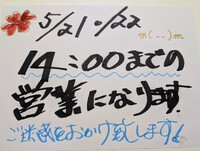 5/21・/22
m(..)m
14:00までの
営業になります
ご迷惑をおかけ致します